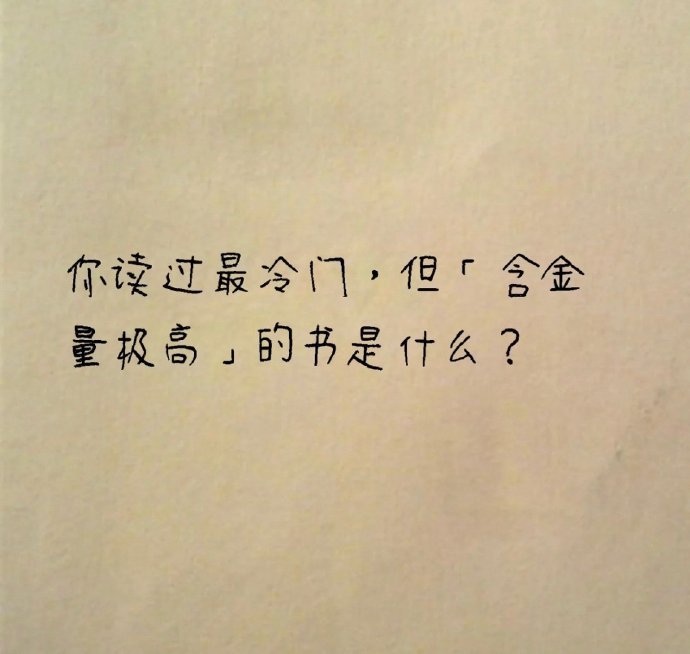 你读过最冷门，但「含金
量极高」的书是什么？